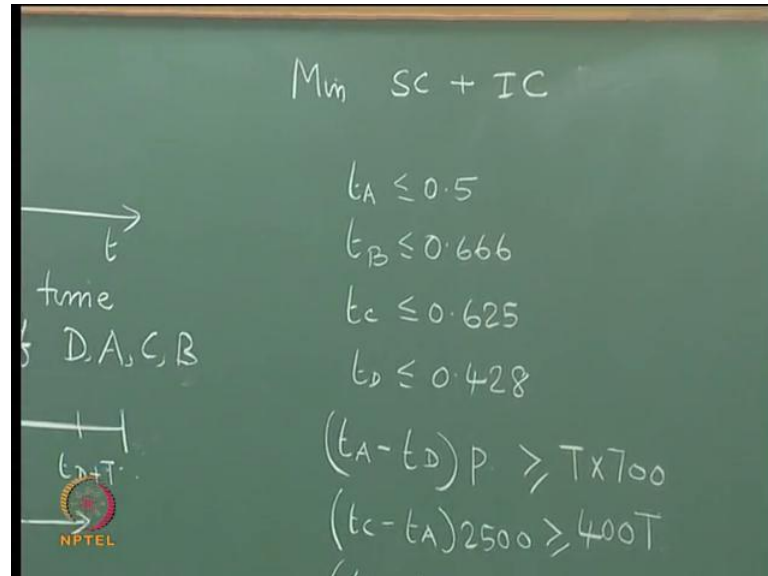 Min SC + IC
t_A ≤ 0.5
t_B ≤ 0.666
t_C ≤ 0.625
t_D ≤ 0.428
(t_A - t_D) P. ≥ T×700
(t_C - t_A) 2500 ≥ 400T
t
time
D, A, C, B
t_D+T
NPTEL